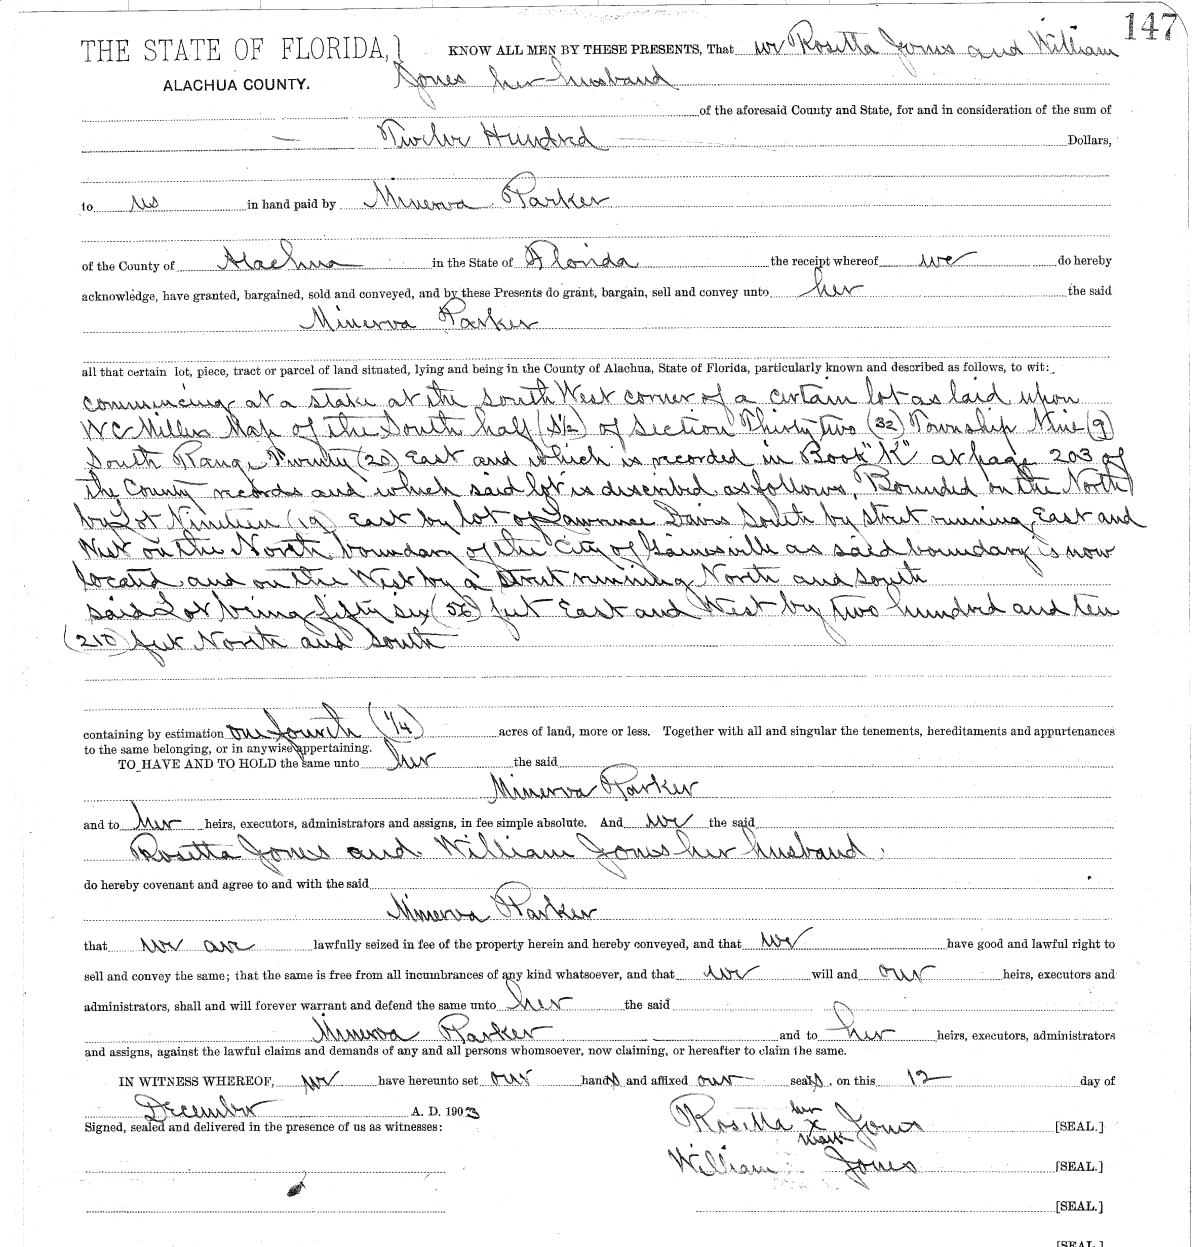 147
THE STATE OF FLORIDA,} KNOW ALL MEN BY THESE PRESENTS, That we Rosetta Jones and William
ALACHUA COUNTY. Jones her husband
of the aforesaid County and State, for and in consideration of the sum of
— Twelve Hundred — Dollars,
to us in hand paid by Minerva Parker
of the County of Alachua in the State of Florida the receipt whereof we do hereby
acknowledge, have granted, bargained, sold and conveyed, and by these Presents do grant, bargain, sell and convey unto her the said
Minerva Parker
all that certain lot, piece, tract or parcel of land situated, lying and being in the County of Alachua, State of Florida, particularly known and described as follows, to wit:
commencing at a stake at the South West corner of a certain lot as laid upon
WC Millers Map of the South half (S½) of Section Thirty two (32) Township Nine (9)
South Range Twenty (20) East and which is recorded in Book "K" at page 203 of
the County records and which said lot is described as follows, Bounded on the North
by Lot Nineteen (19) East by lot of Lawrence Davis South by street running East and
West on the North boundary of the City of Gainesville as said boundary is now
located and on the West by a street running North and South
said Lot being fifty six (56) feet East and West by two hundred and ten
(210) feet North and South
containing by estimation one fourth (1/4) acres of land, more or less. Together with all and singular the tenements, hereditaments and appurtenances
to the same belonging, or in anywise appertaining.
TO HAVE AND TO HOLD the same unto her the said
Minerva Parker
and to her heirs, executors, administrators and assigns, in fee simple absolute. And we the said
Rosetta Jones and William Jones her husband.
do hereby covenant and agree to and with the said
Minerva Parker
that we are lawfully seized in fee of the property herein and hereby conveyed, and that we have good and lawful right to
sell and convey the same; that the same is free from all incumbrances of any kind whatsoever, and that we will and our heirs, executors and
administrators, shall and will forever warrant and defend the same unto her the said
Minerva Parker and to her heirs, executors, administrators
and assigns, against the lawful claims and demands of any and all persons whomsoever, now claiming, or hereafter to claim the same.
IN WITNESS WHEREOF, we have hereunto set our hands and affixed our seals, on this 12 day of
December A. D. 1903
Signed, sealed and delivered in the presence of us as witnesses:
Rosetta her x mark Jones [SEAL.]
William Jones [SEAL.]
[SEAL.]
[SEAL.]